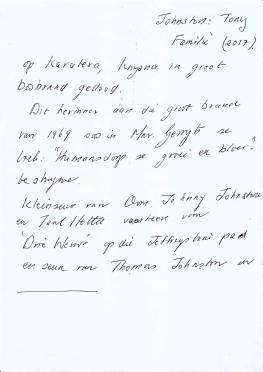 Johnston: Tony
Familie (2017)
op Karatera, Knysna in groot
bosbrand gedood.
Dit herinner aan die groot brande
van 1969 soos in Mnr. Gerryts se
boek: "Humansdorp se groei en bloei"
beskryf
Kleinseun van Oom Johnny Johnston
en Tant Hetta van
'Drie Weswe' op die Jeffreysbaai pad
en seun van Thomas Johnston en